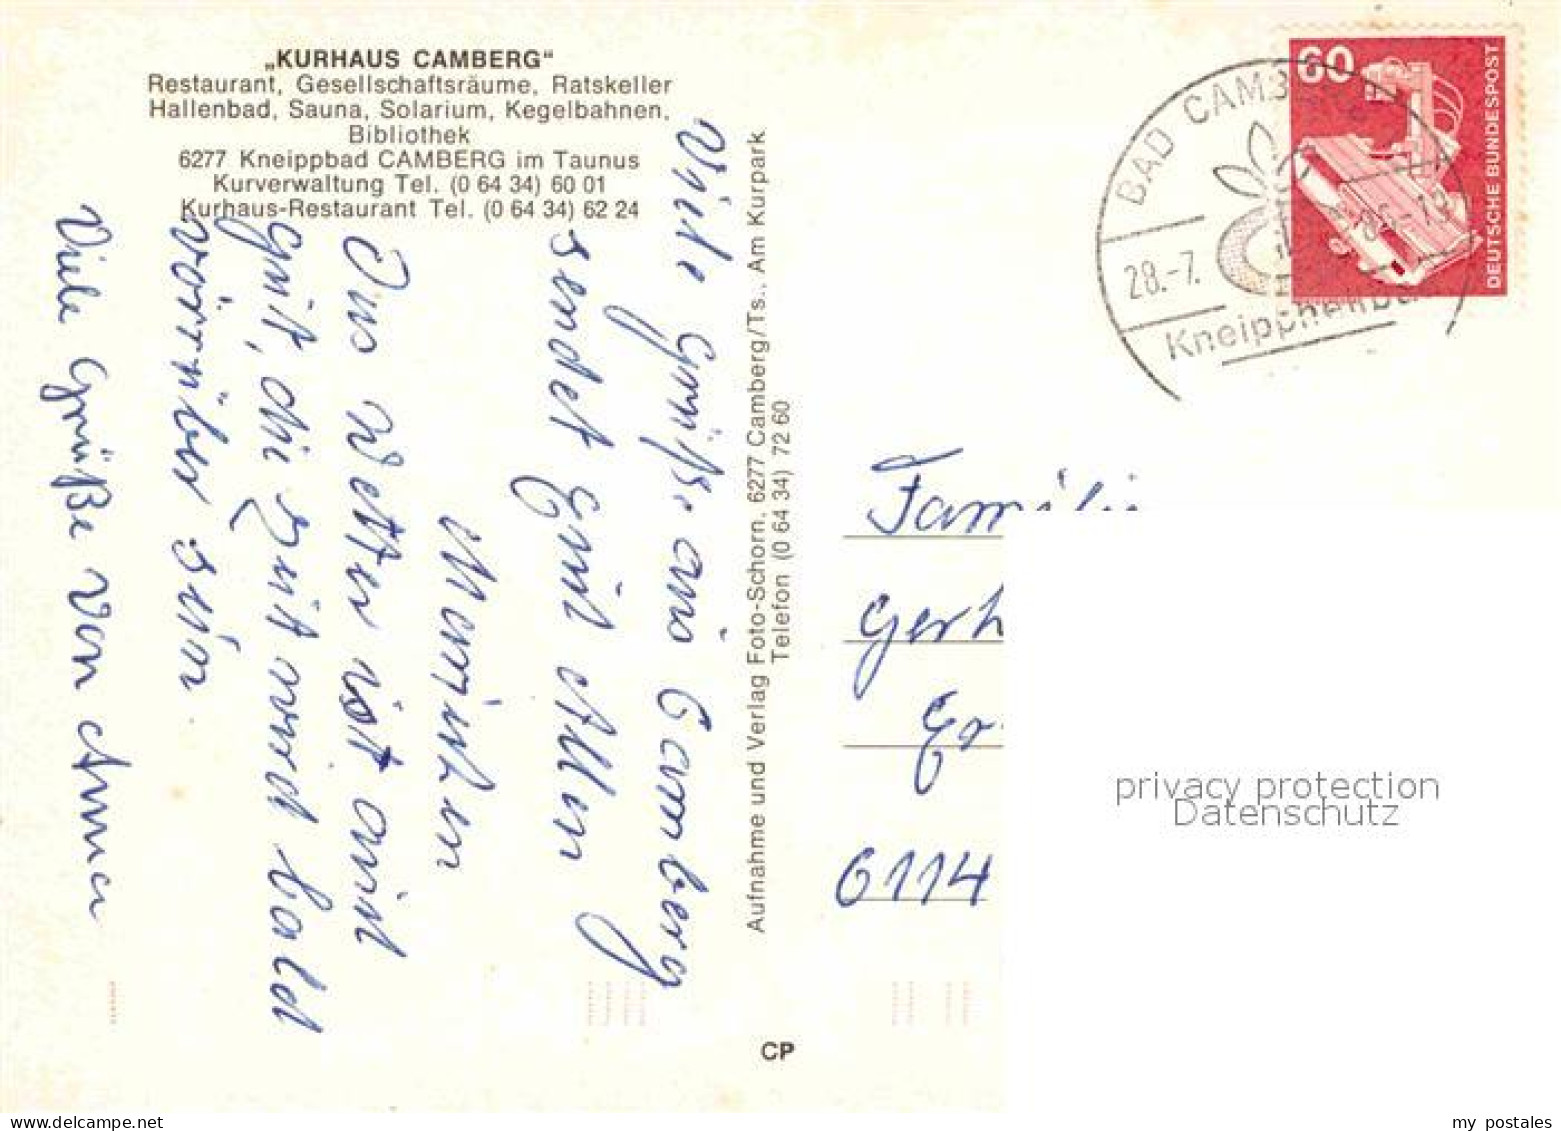 „KURHAUS CAMBERG“
Restaurant, Gesellschaftsräume, Ratskeller
Hallenbad, Sauna, Solarium, Kegelbahnen,
Bibliothek
6277 Kneippbad CAMBERG im Taunus
Kurverwaltung Tel. (0 64 34) 60 01
Kurhaus-Restaurant Tel. (0 64 34) 62 24
Viele Grüße aus Camberg
sendet Euch Allen
Das Wetter ist auch
gut, die Zeit wird bald
vorrüber sein.
Viele Grüße von Anna
Aufnahme und Verlag Foto-Schorn, 6277 Camberg/Ts., Am Kurpark
Telefon (0 64 34) 72 60
CP
60
DEUTSCHE BUNDESPOST
BAD CAMB
28.-7.
Kneippheilba
Familie
Gerh
Er
6114
privacy protection
Datenschutz
my postales